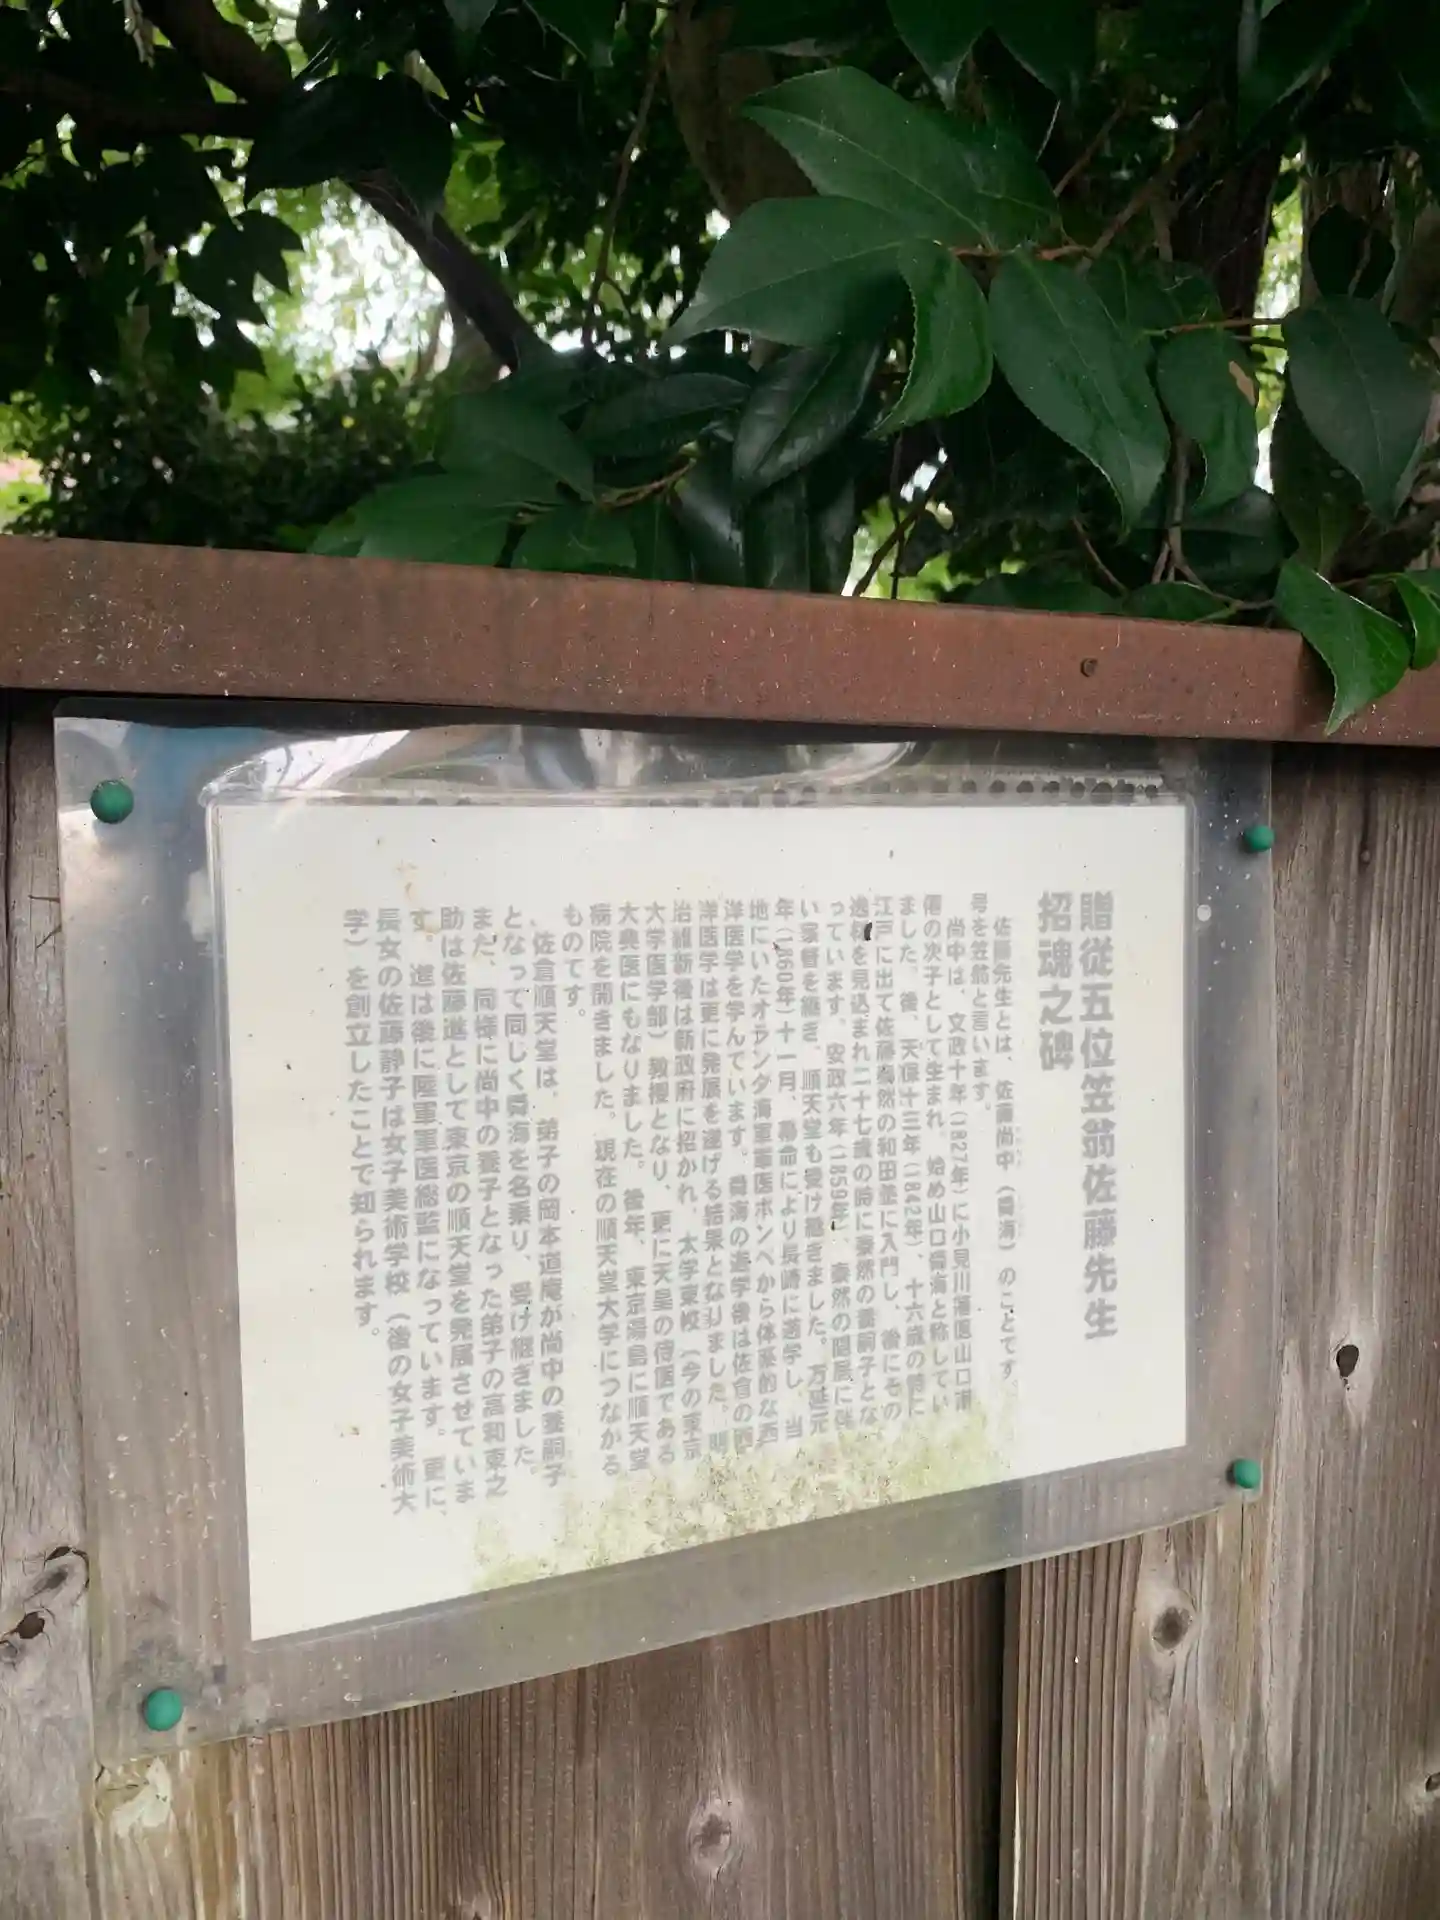 贈従五位笠翁佐藤先生
招魂之碑
佐藤先生とは、佐藤尚中（舜海）のことです
号を笠翁と言います。
尚中は、文政十年(1827年)に小見川藩医山口甫
僊の次子として生まれ。始め山口舜海と称してい
ました。後、天保十三年(1842年)、十六歳の時に
江戸に出て佐藤泰然の和田塾に入門し、後にその
逸材を見込まれ二十七歳の時に泰然の養嗣子とな
っています。安政六年(1859年)、泰然の隠居に伴
い家督を継ぎ、順天堂も受け継ぎました。万延元
年(1860年)十一月、幕命により長崎に遊学し、当
地にいたオランダ海軍軍医ポンペから体系的な西
洋医学を学んでいます。舜海の遊学後は佐倉の西
洋医学は更に発展を遂げる結果となりました。明
治維新後は新政府に招かれ、大学東校（今の東京
大学医学部）教授となり、更に天皇の侍医である
大典医にもなりました。後年、東京湯島に順天堂
病院を開きました。現在の順天堂大学につながる
ものです。
、佐倉順天堂は、弟子の岡本道庵が尚中の養嗣子
となって同じく舜海を名乗り、受け継ぎました。
また、同様に尚中の養子となった弟子の高和東之
助は佐藤進として東京の順天堂を発展させていま
す。進は後に陸軍軍医総監になっています。更に、
長女の佐藤静子は女子美術学校（後の女子美術大
学）を創立したことで知られます。